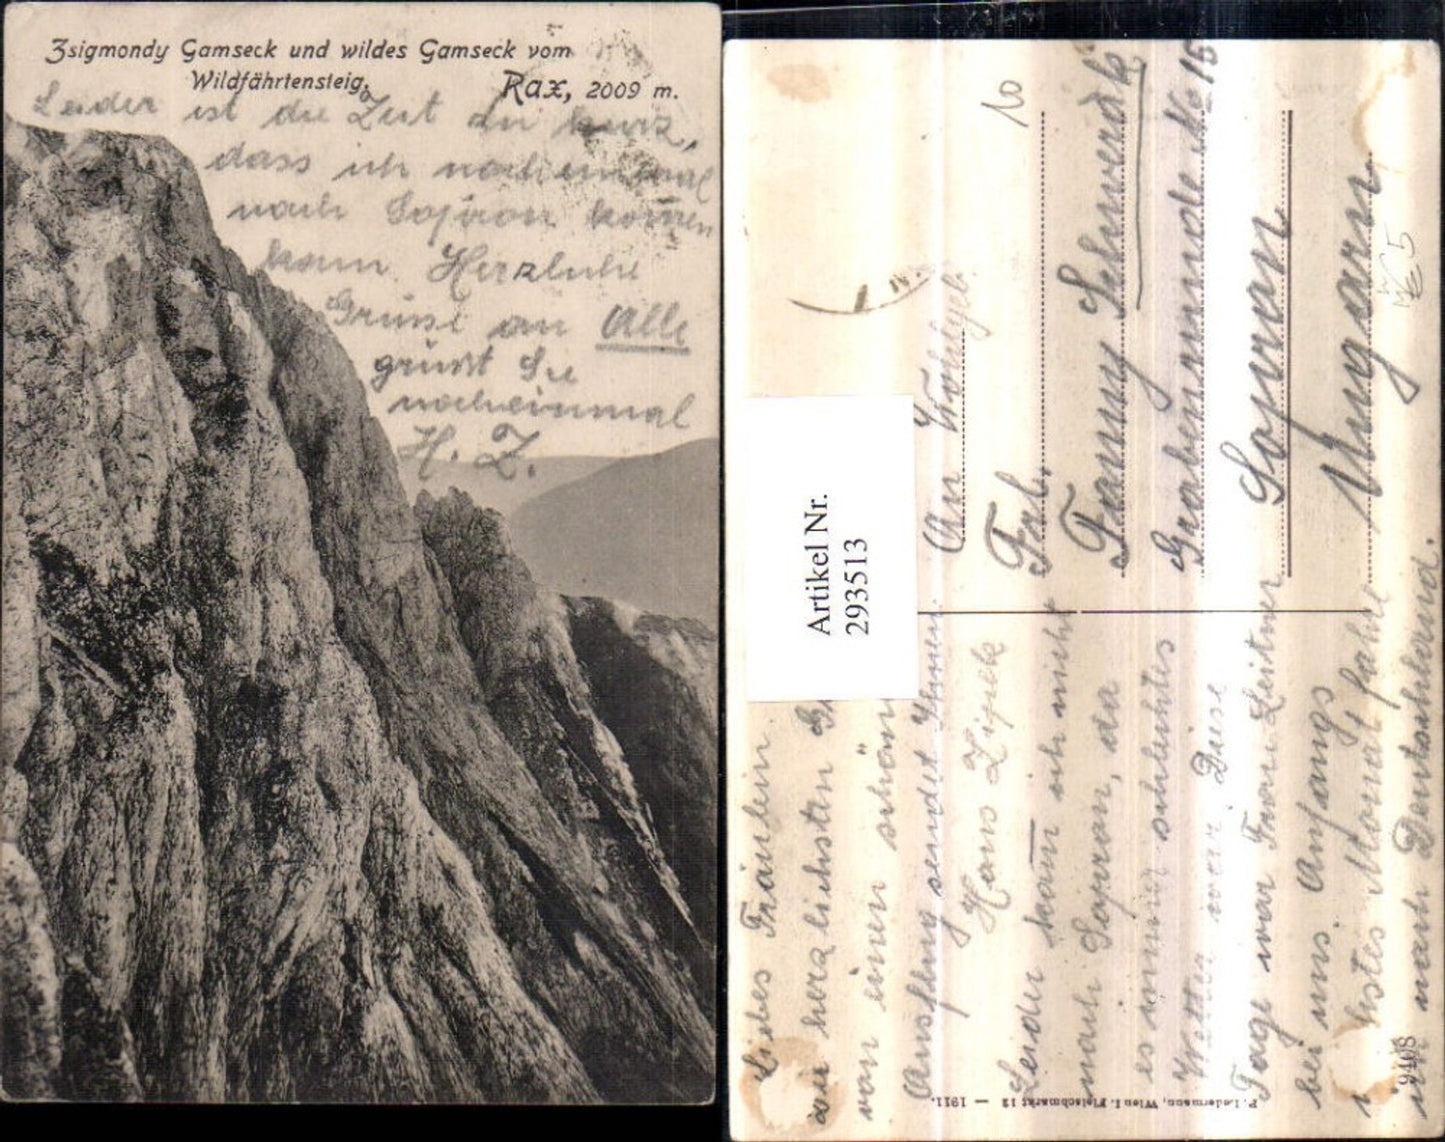 Zsigmondy Gamseck und wildes Gamseck vom
Wildfährtensteig.
Rax, 2009 m.
Leider ist die Zeit zu kurz,
dass ich noch einmal
nach Sopron kom̄en
kann. Herzliche
Grüsse an Alle
grüsst Sie
nocheinmal
H. Z.
Liebes Fräulein
die herzlichsten
von einem schönen
Ausflug sendet Ihnen
Hans
Leider kan̄ ich nicht
nach Sopron, da
es immer schlechtes
Wetter war. Diese
Tage war Frau Leitner
bei uns. Anfangs
Monat fahre
ich nach Deutschland.
Artikel Nr.
293513
An Wohlgeb.
10
Frl.
Fanny Schwerdt
Grabenrunde No 15
Sopron
Ungarn
5
P. Ledermann, Wien I. Fleischmarkt 12 — 1911.
9408